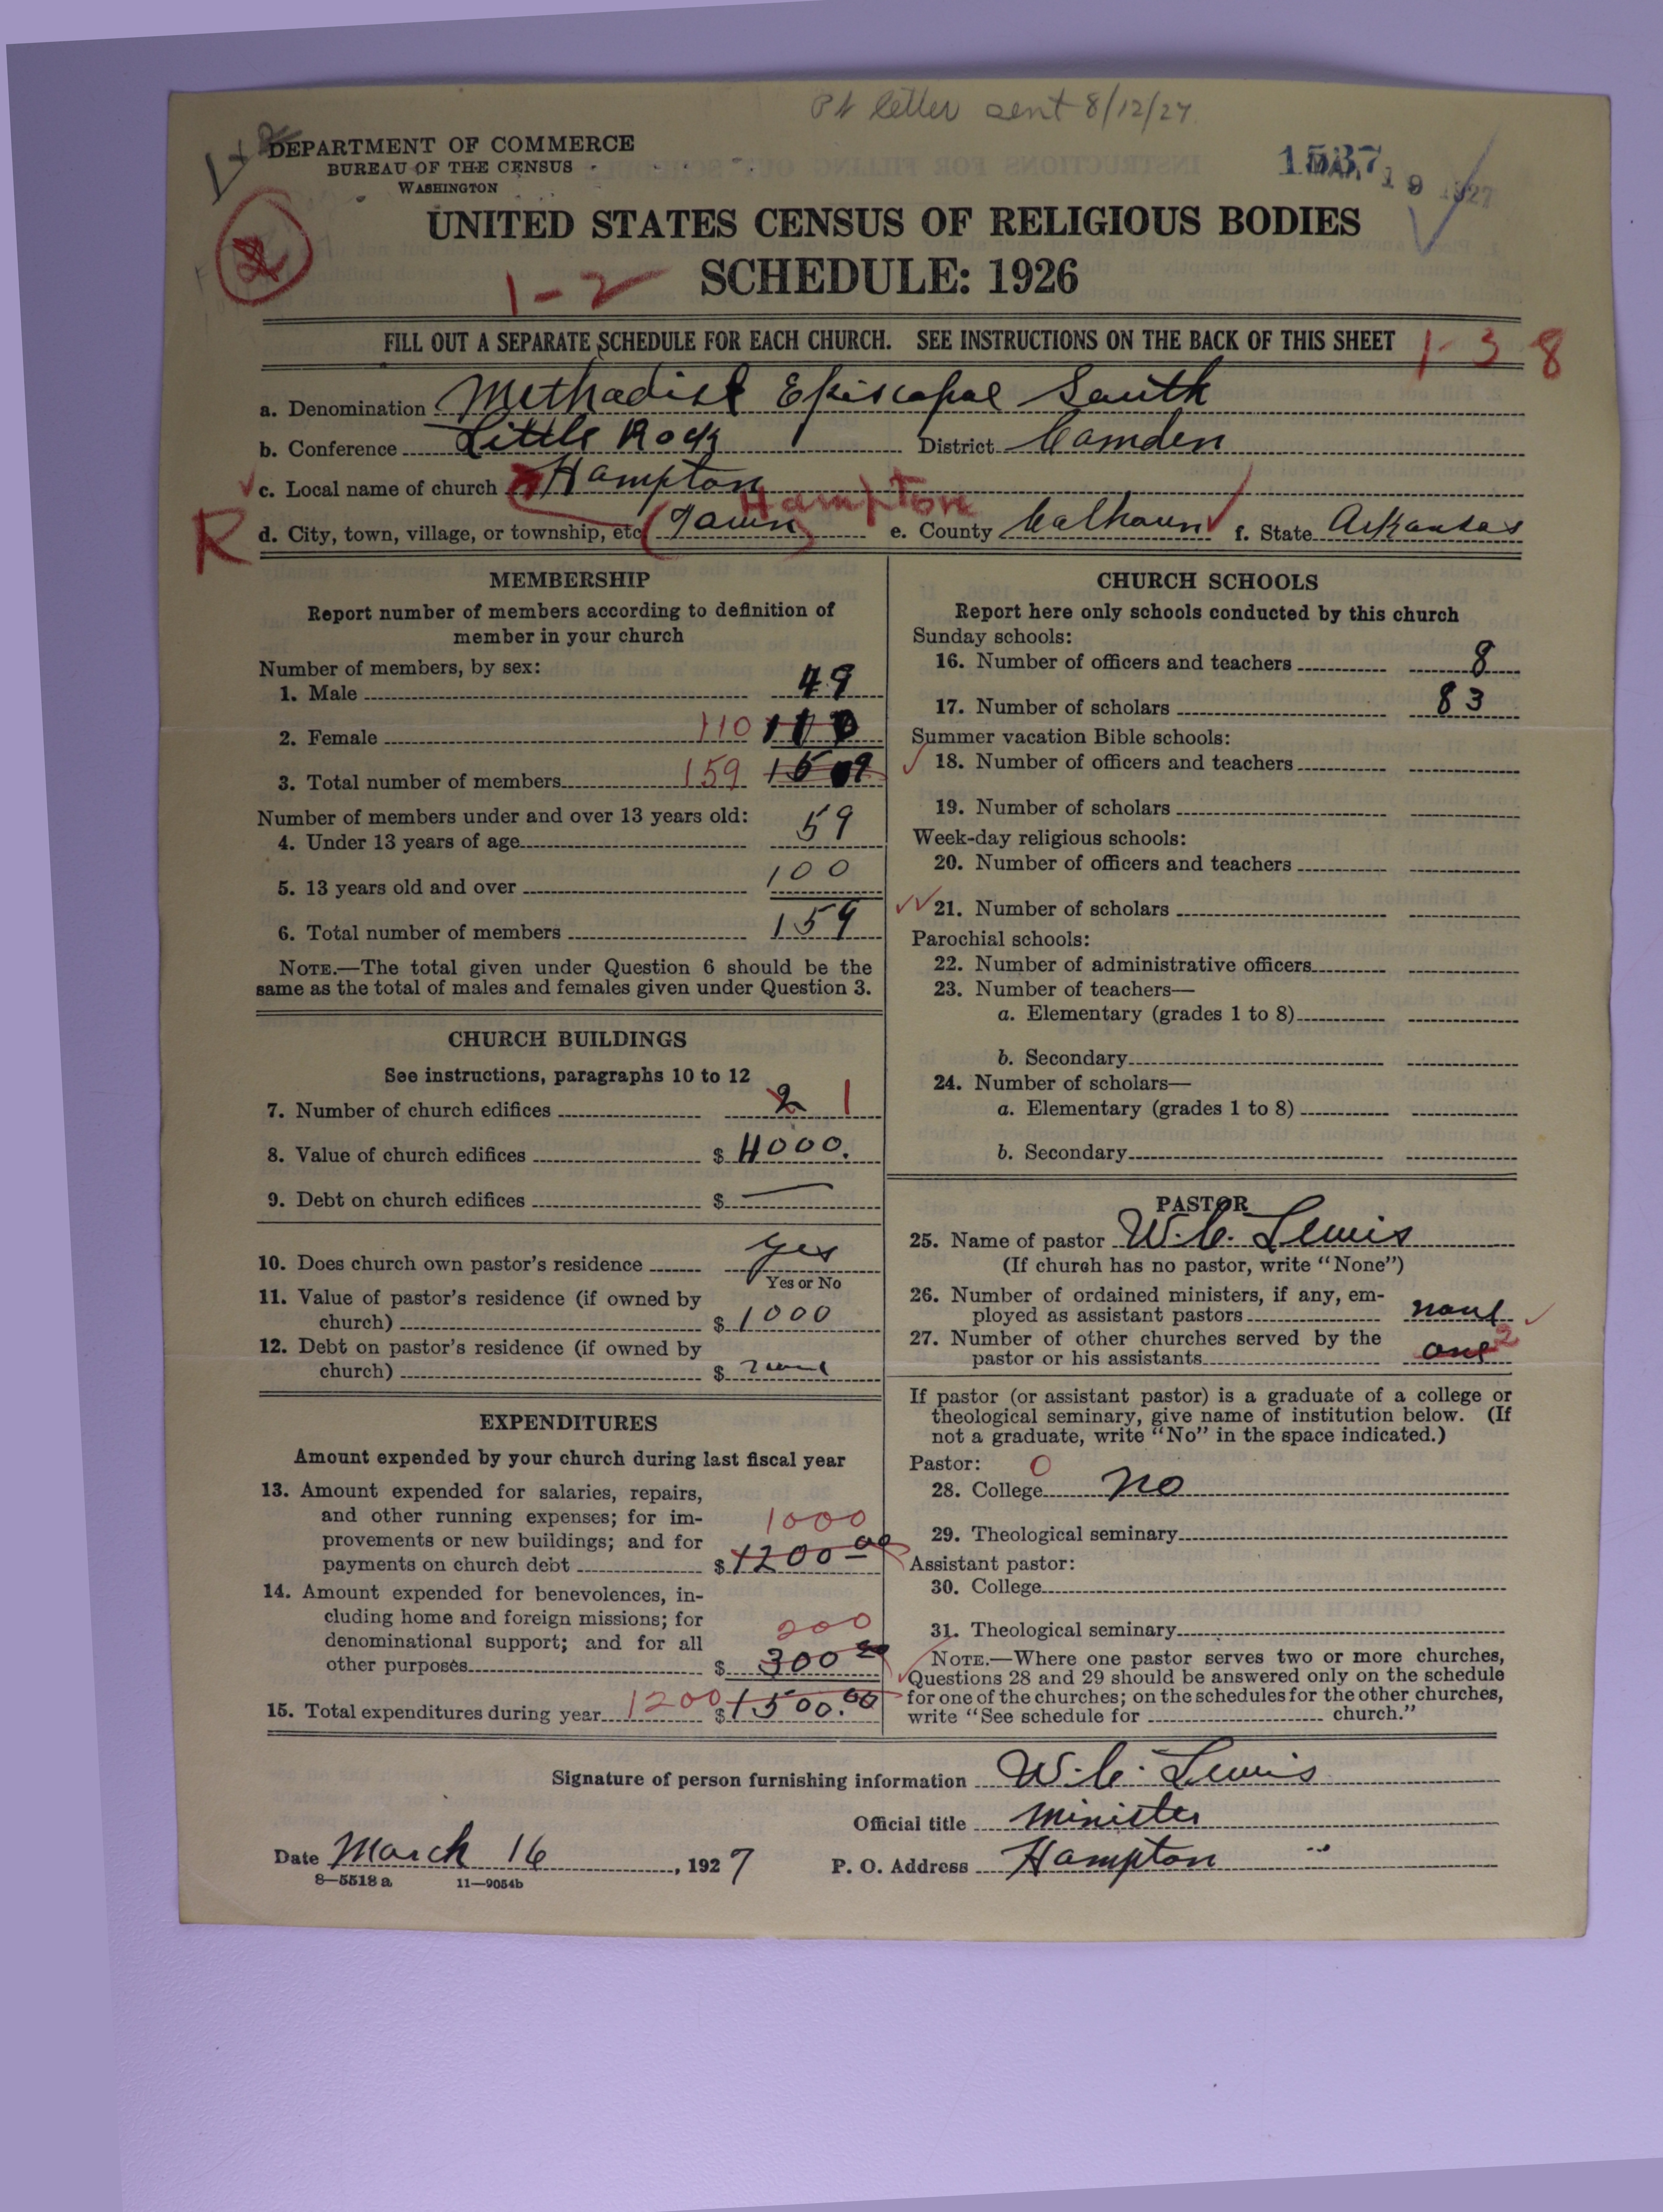 Pt letter sent 8/12/27
DEPARTMENT OF COMMERCE
BUREAU OF THE CENSUS
WASHINGTON
1537
19 1927
UNITED STATES CENSUS OF RELIGIOUS BODIES
2
1-2
SCHEDULE: 1926
FILL OUT A SEPARATE SCHEDULE FOR EACH CHURCH. SEE INSTRUCTIONS ON THE BACK OF THIS SHEET
1-3 8
a. Denomination Methodist Episcopal South
b. Conference Little Rock District Camden
c. Local name of church Hampton
Hampton
R d. City, town, village, or township, etc (Town) e. County Calhoun f. State Arkansas
MEMBERSHIP
Report number of members according to definition of
member in your church
Number of members, by sex:
1. Male 49
2. Female 110 110
3. Total number of members 159 159
Number of members under and over 13 years old:
4. Under 13 years of age 59
5. 13 years old and over 100
6. Total number of members 159
NOTE.—The total given under Question 6 should be the
same as the total of males and females given under Question 3.
CHURCH BUILDINGS
See instructions, paragraphs 10 to 12
7. Number of church edifices 2 1
8. Value of church edifices $ 4000.
9. Debt on church edifices $ —
10. Does church own pastor's residence yes
Yes or No
11. Value of pastor's residence (if owned by
church) $ 1000
12. Debt on pastor's residence (if owned by
church) $ none
EXPENDITURES
Amount expended by your church during last fiscal year
13. Amount expended for salaries, repairs,
and other running expenses; for im-
1000
provements or new buildings; and for
payments on church debt $ 1200.00
14. Amount expended for benevolences, in-
cluding home and foreign missions; for
200
denominational support; and for all
other purposes $ 300.00
15. Total expenditures during year 1200 $ 1500.00
CHURCH SCHOOLS
Report here only schools conducted by this church
Sunday schools:
16. Number of officers and teachers 8
17. Number of scholars 83
Summer vacation Bible schools:
18. Number of officers and teachers
19. Number of scholars
Week-day religious schools:
20. Number of officers and teachers
21. Number of scholars
Parochial schools:
22. Number of administrative officers
23. Number of teachers—
a. Elementary (grades 1 to 8)
b. Secondary
24. Number of scholars—
a. Elementary (grades 1 to 8)
b. Secondary
PASTOR
25. Name of pastor W. C. Lewis
(If church has no pastor, write "None")
26. Number of ordained ministers, if any, em-
ployed as assistant pastors none
27. Number of other churches served by the
pastor or his assistants one 2
If pastor (or assistant pastor) is a graduate of a college or
theological seminary, give name of institution below. (If
not a graduate, write "No" in the space indicated.)
Pastor: 0
28. College no
29. Theological seminary
Assistant pastor:
30. College
31. Theological seminary
NOTE.—Where one pastor serves two or more churches,
Questions 28 and 29 should be answered only on the schedule
for one of the churches; on the schedules for the other churches,
write "See schedule for church."
Signature of person furnishing information W. C. Lewis
Official title Minister
Date March 16, 1927 P. O. Address Hampton
8—5518 a 11—9054b